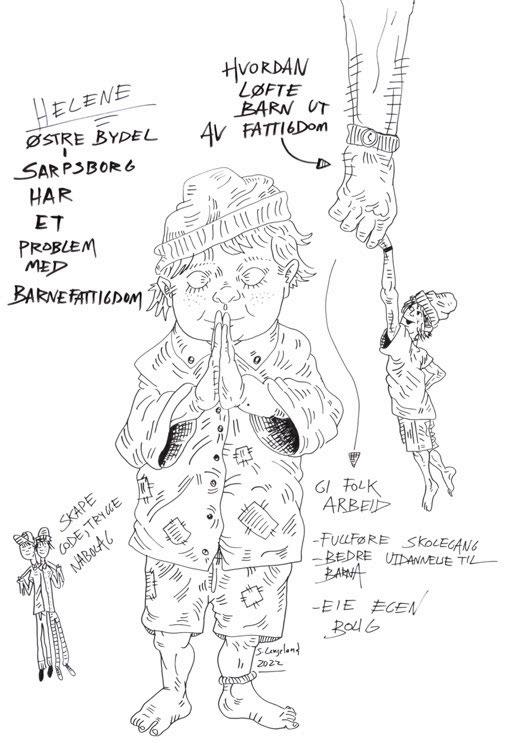 HELENE
ØSTRE BYDEL
I
SARPSBORG
HAR
ET
PROBLEM
MED
BARNEFATTIGDOM
HVORDAN
LØFTE
BARN UT
AV FATTIGDOM
GI FOLK
ARBEID
-FULLFØRE SKOLEGANG
-BEDRE UTDANNELSE TIL
BARNA
-EIE EGEN
BOLIG
SKAPE
GODE, TRYGGE
NABOLAG
2022